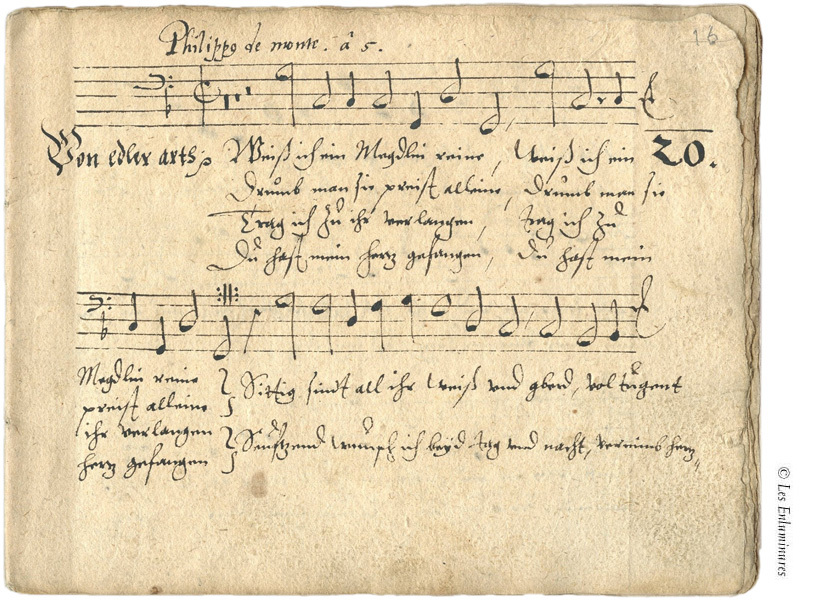 Philippo de monte. â 5.
16
Von edler arth
Weiß ich ein Megdlin reine, Weiß ich ein
20.
Drumb man sie preist alleine, Drumb man sie
Trag ich zů ihr verlangen, trag ich zů
Du hast mein hertz gefangen, Du hast mein
Megdlin reine
preist alleine
Sittig sindt all ihr weiß und gberd, vol tugent
ihr verlangen
hertz gefangen
Seufftzend wünsch ich beyd tag und nacht, vereinls hertz
© Les Enluminures